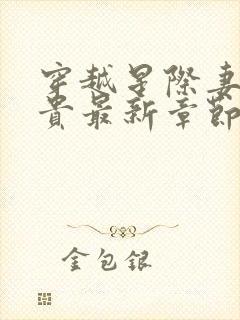 穿越星際妻
貴最新章節
金包銀